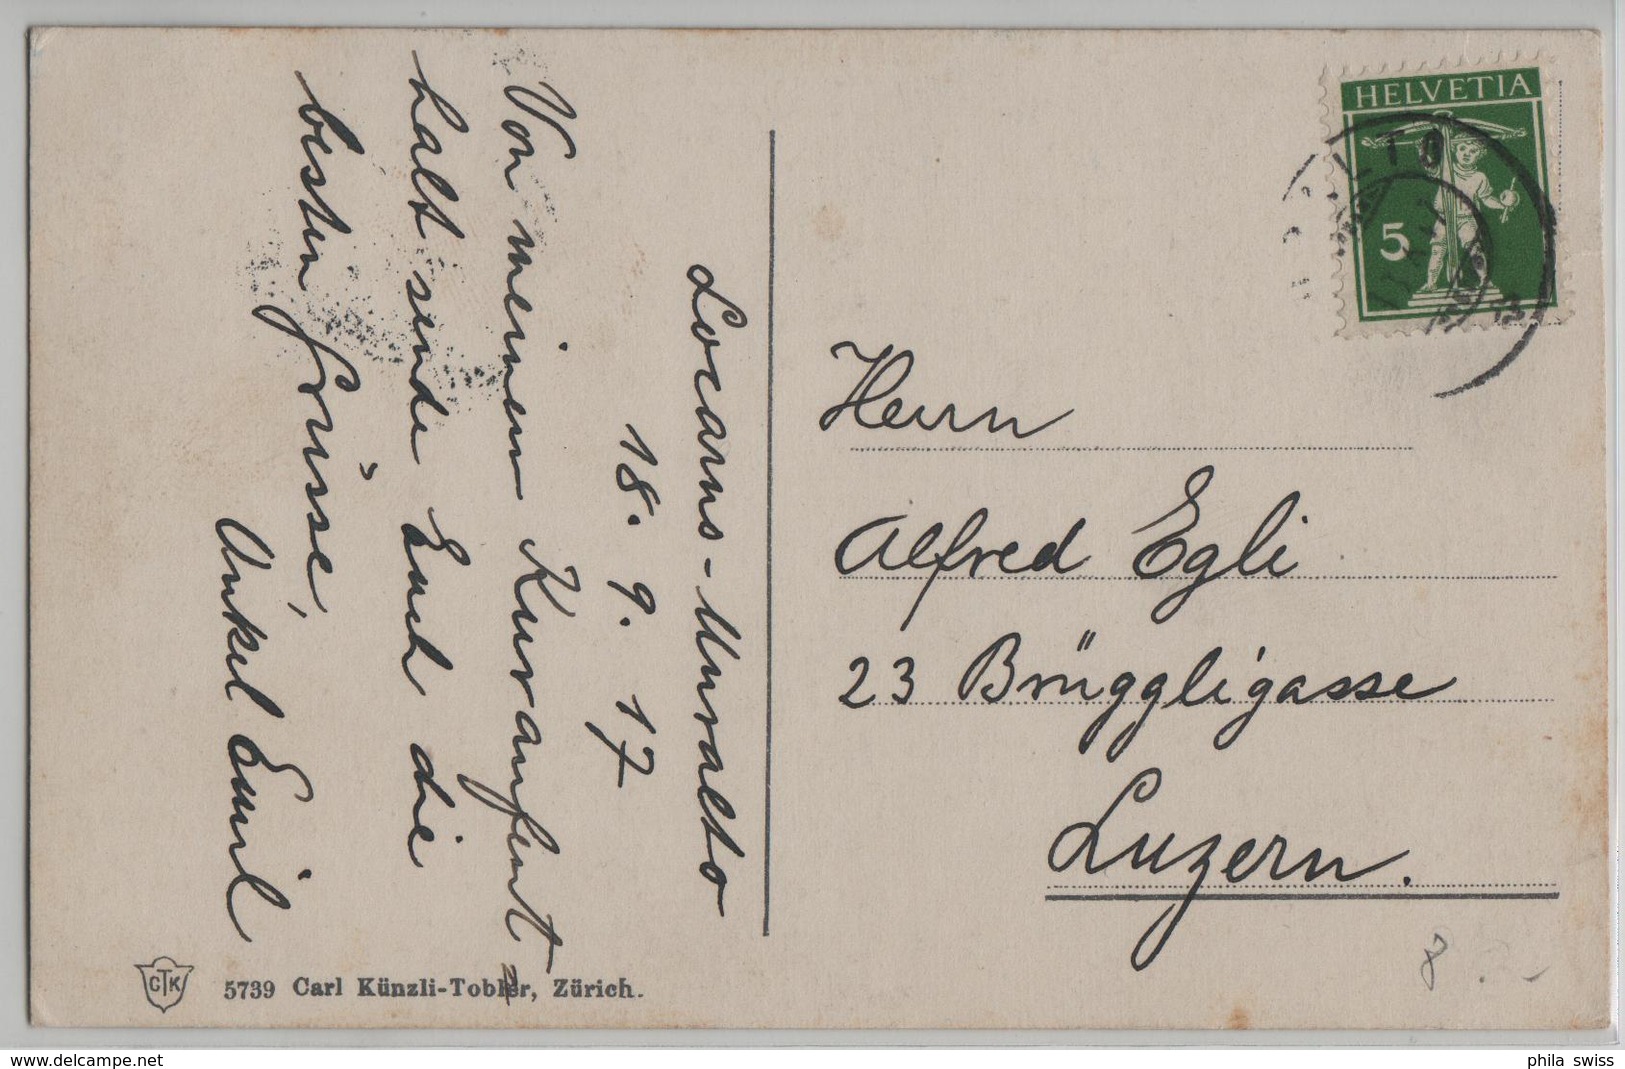 Locarno-Muralto
18. 9. 17
Von meinem Kuraufent-
halt sende Euch die
besten Grüsse,
Onkel Emil
HELVETIA
5
Herrn
Alfred Egli
23 Brüggligasse
Luzern.
8.-
CTK
5739 Carl Künzli-Tobler, Zürich.
www.delcampe.net
phila swiss